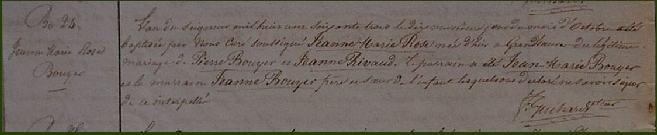 Bo 24
Jeanne Marie Rose
Bouyer
L'an du seigneur mil huit cent soixante trois le dix neuvième jour du mois d'Octobre a été
baptisée par nous Curé soussigné Jeanne Marie Rose née d'hier à du légitime
mariage de Pierre Bouyer et Jeanne Rivaud. Le parrain a été Jean Marie Bouyer
et la marraine Jeanne Bouyer frère et soeur de l'enfant lesquels ont déclaré ne savoir signer
de ce interpellés